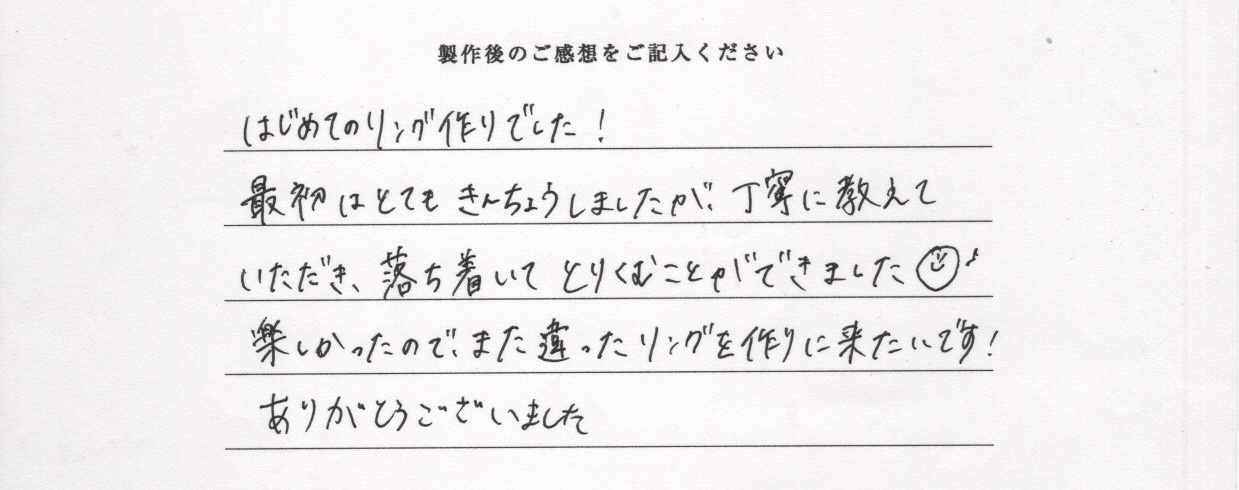 製作後のご感想をご記入ください
はじめてのリング作りでした！
最初はとてもきんちょうしましたが、丁寧に教えて
いただき、落ち着いてとりくむことができました☺♪
楽しかったので、また違ったリングを作りに来たいです！
ありがとうございました